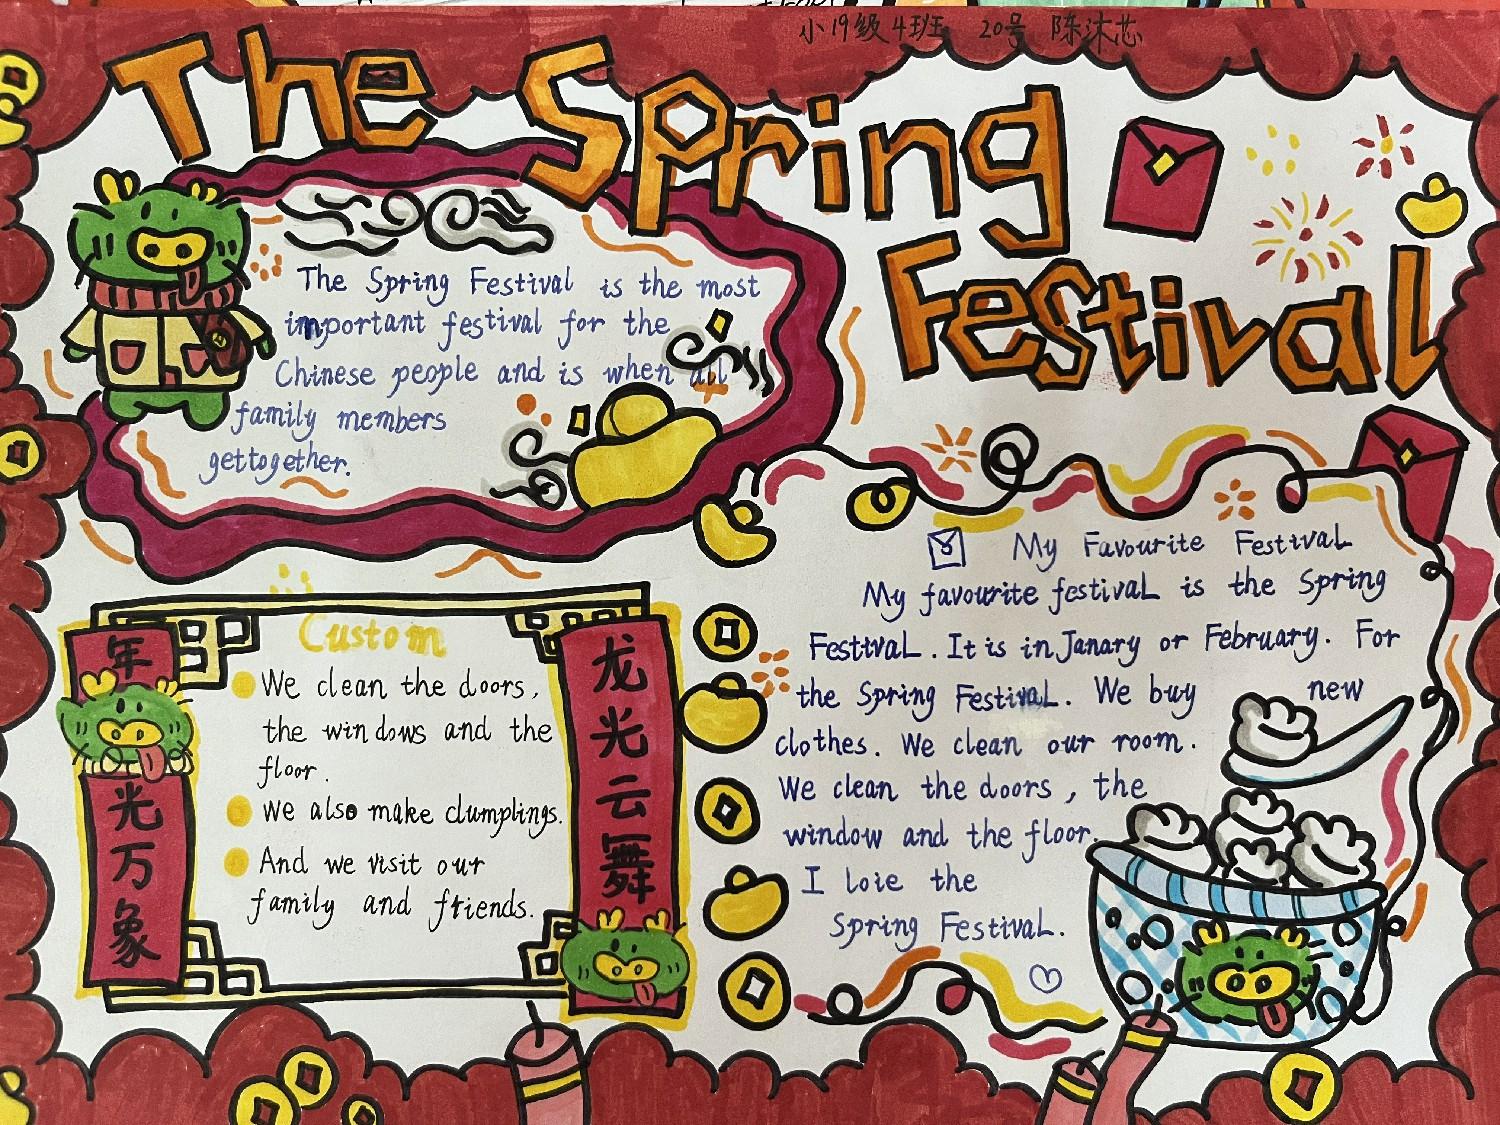 小19级4班 20号 陈沐芯
The Spring
Festival
The Spring Festival is the most
important festival for the
Chinese people and is when all
family members
gettogether.
Custom
We clean the doors,
the windows and the
floor.
We also make dumplings.
And we visit our
family and friends.
年
光
万
象
龙
光
云
舞
My Favourite Festival
My favourite festival is the Spring
Festival. It is in Janary or February. For
the Spring Festival. We buy new
clothes. We clean our room.
We clean the doors, the
window and the floor.
I loie the
Spring Festival.